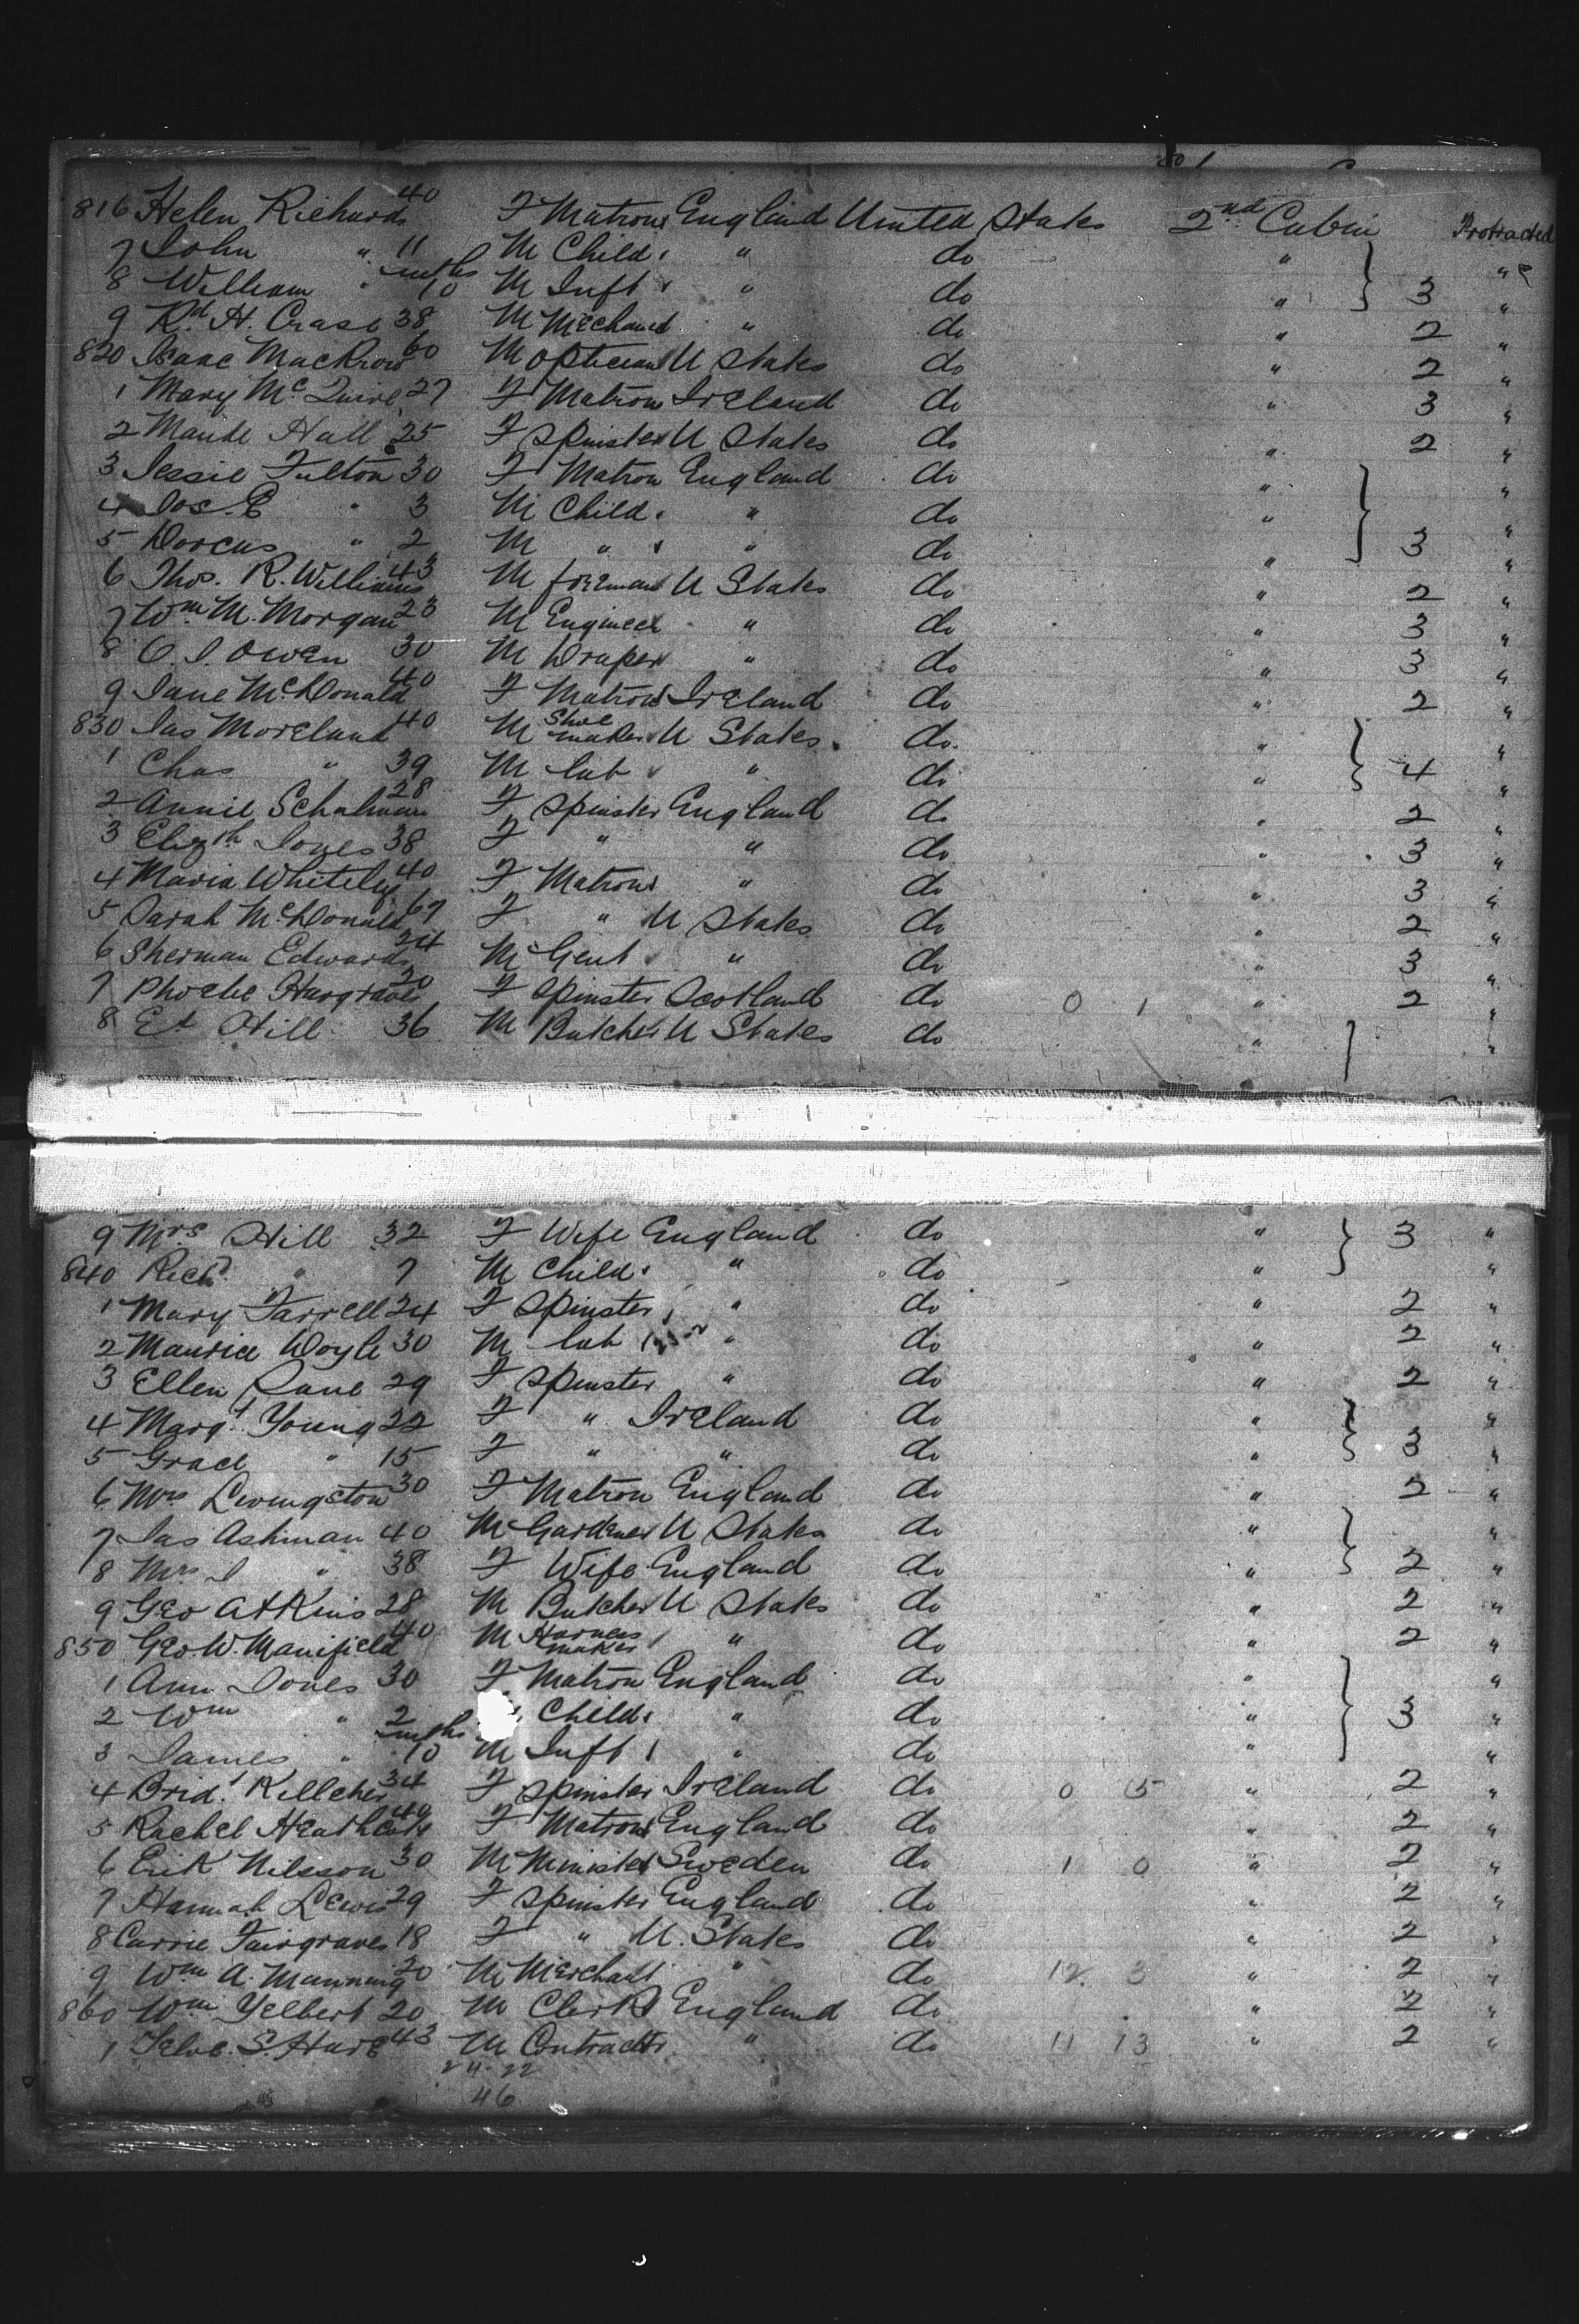 816 Helen Richards 40 F Matron England United States 2nd Cabin Protracted
7 John " 11 M Child " do " "
8 William " mths 10 M Inft " do " 3 "
9 Rd H. Crase 38 M Mechanic " do " 2 "
820 Isaac Mackrow 60 M Optician U States do " 2 "
1 Mary McQuire 27 F Matron Ireland do " 3 "
2 Maude Hall 25 F Spinster U States do " 2 "
3 Jessie Fulton 30 F Matron England do " "
4 Jos. E " 3 M Child " do " "
5 Dorcus " 2 M " " do " 3 "
6 Thos. R. Williams 43 M foreman U States do " 2 "
7 Wm M. Morgan 23 M Engineer " do " 3 "
8 O. J. Owen 30 M Draper " do " 3 "
9 Jane McDonald 40 F Matron Ireland do " 2 "
830 Jas Moreland 40 M Shoe maker U States do " "
1 Chas " 39 M lab " do " 4 "
2 Annie Schalman 28 F Spinster England do " 2 "
3 Elizth Jones 38 F " " do " 3 "
4 Maria Whiteley 40 F Matron " do " 3 "
5 Sarah McDonald 67 F " U States do " 2 "
6 Sherman Edwards 24 M Gent " do " 3 "
7 Phoebe Hargraves 20 F Spinster Scotland do 0 1 " 2 "
8 Ed Hill 36 M Butcher U States do " "
9 Mrs Hill 32 F Wife England do " 3 "
840 Richd " 7 M Child " do " "
1 Mary Farrell 24 F Spinster " do " 2 "
2 Maurice Doyle 30 M lab " do " 2 "
3 Ellen Lane 29 F Spinster " do " 2 "
4 Margt Young 22 F " Ireland do " "
5 Grace " 15 F " " do " 3 "
6 Mrs Livingston 30 F Matron England do " 2 "
7 Jas Ashman 40 M Gardener U States do " "
8 Mrs J " 38 F Wife England do " 2 "
9 Geo Atkins 28 M Butcher U States do " 2 "
850 Geo. W. Manifield 40 M Harness maker " do " 2 "
1 Ann Jones 30 F Matron England do " "
2 Wm " 2 Child " do " 3 "
3 James " mths 10 M Inft " do " "
4 Bridt Kelleher 34 F Spinster Ireland do 0 5 " 2 "
5 Rachel Heathcote F Matron England do " 2 "
6 Erik Nilsson 30 M Minister Sweden do 1 0 " 2 "
7 Hannah Lewis 29 F Spinster England do " 2 "
8 Carrie Fairgraves 18 F " U. States do " 2 "
9 Wm A. Manning 20 M Merchant " do 12 3 " 2 "
860 Wm Yelbert 20 M Clerk England do " 2 "
1 S. Hare 43 M Contractr " do 11 13 " 2 "
24-22
46